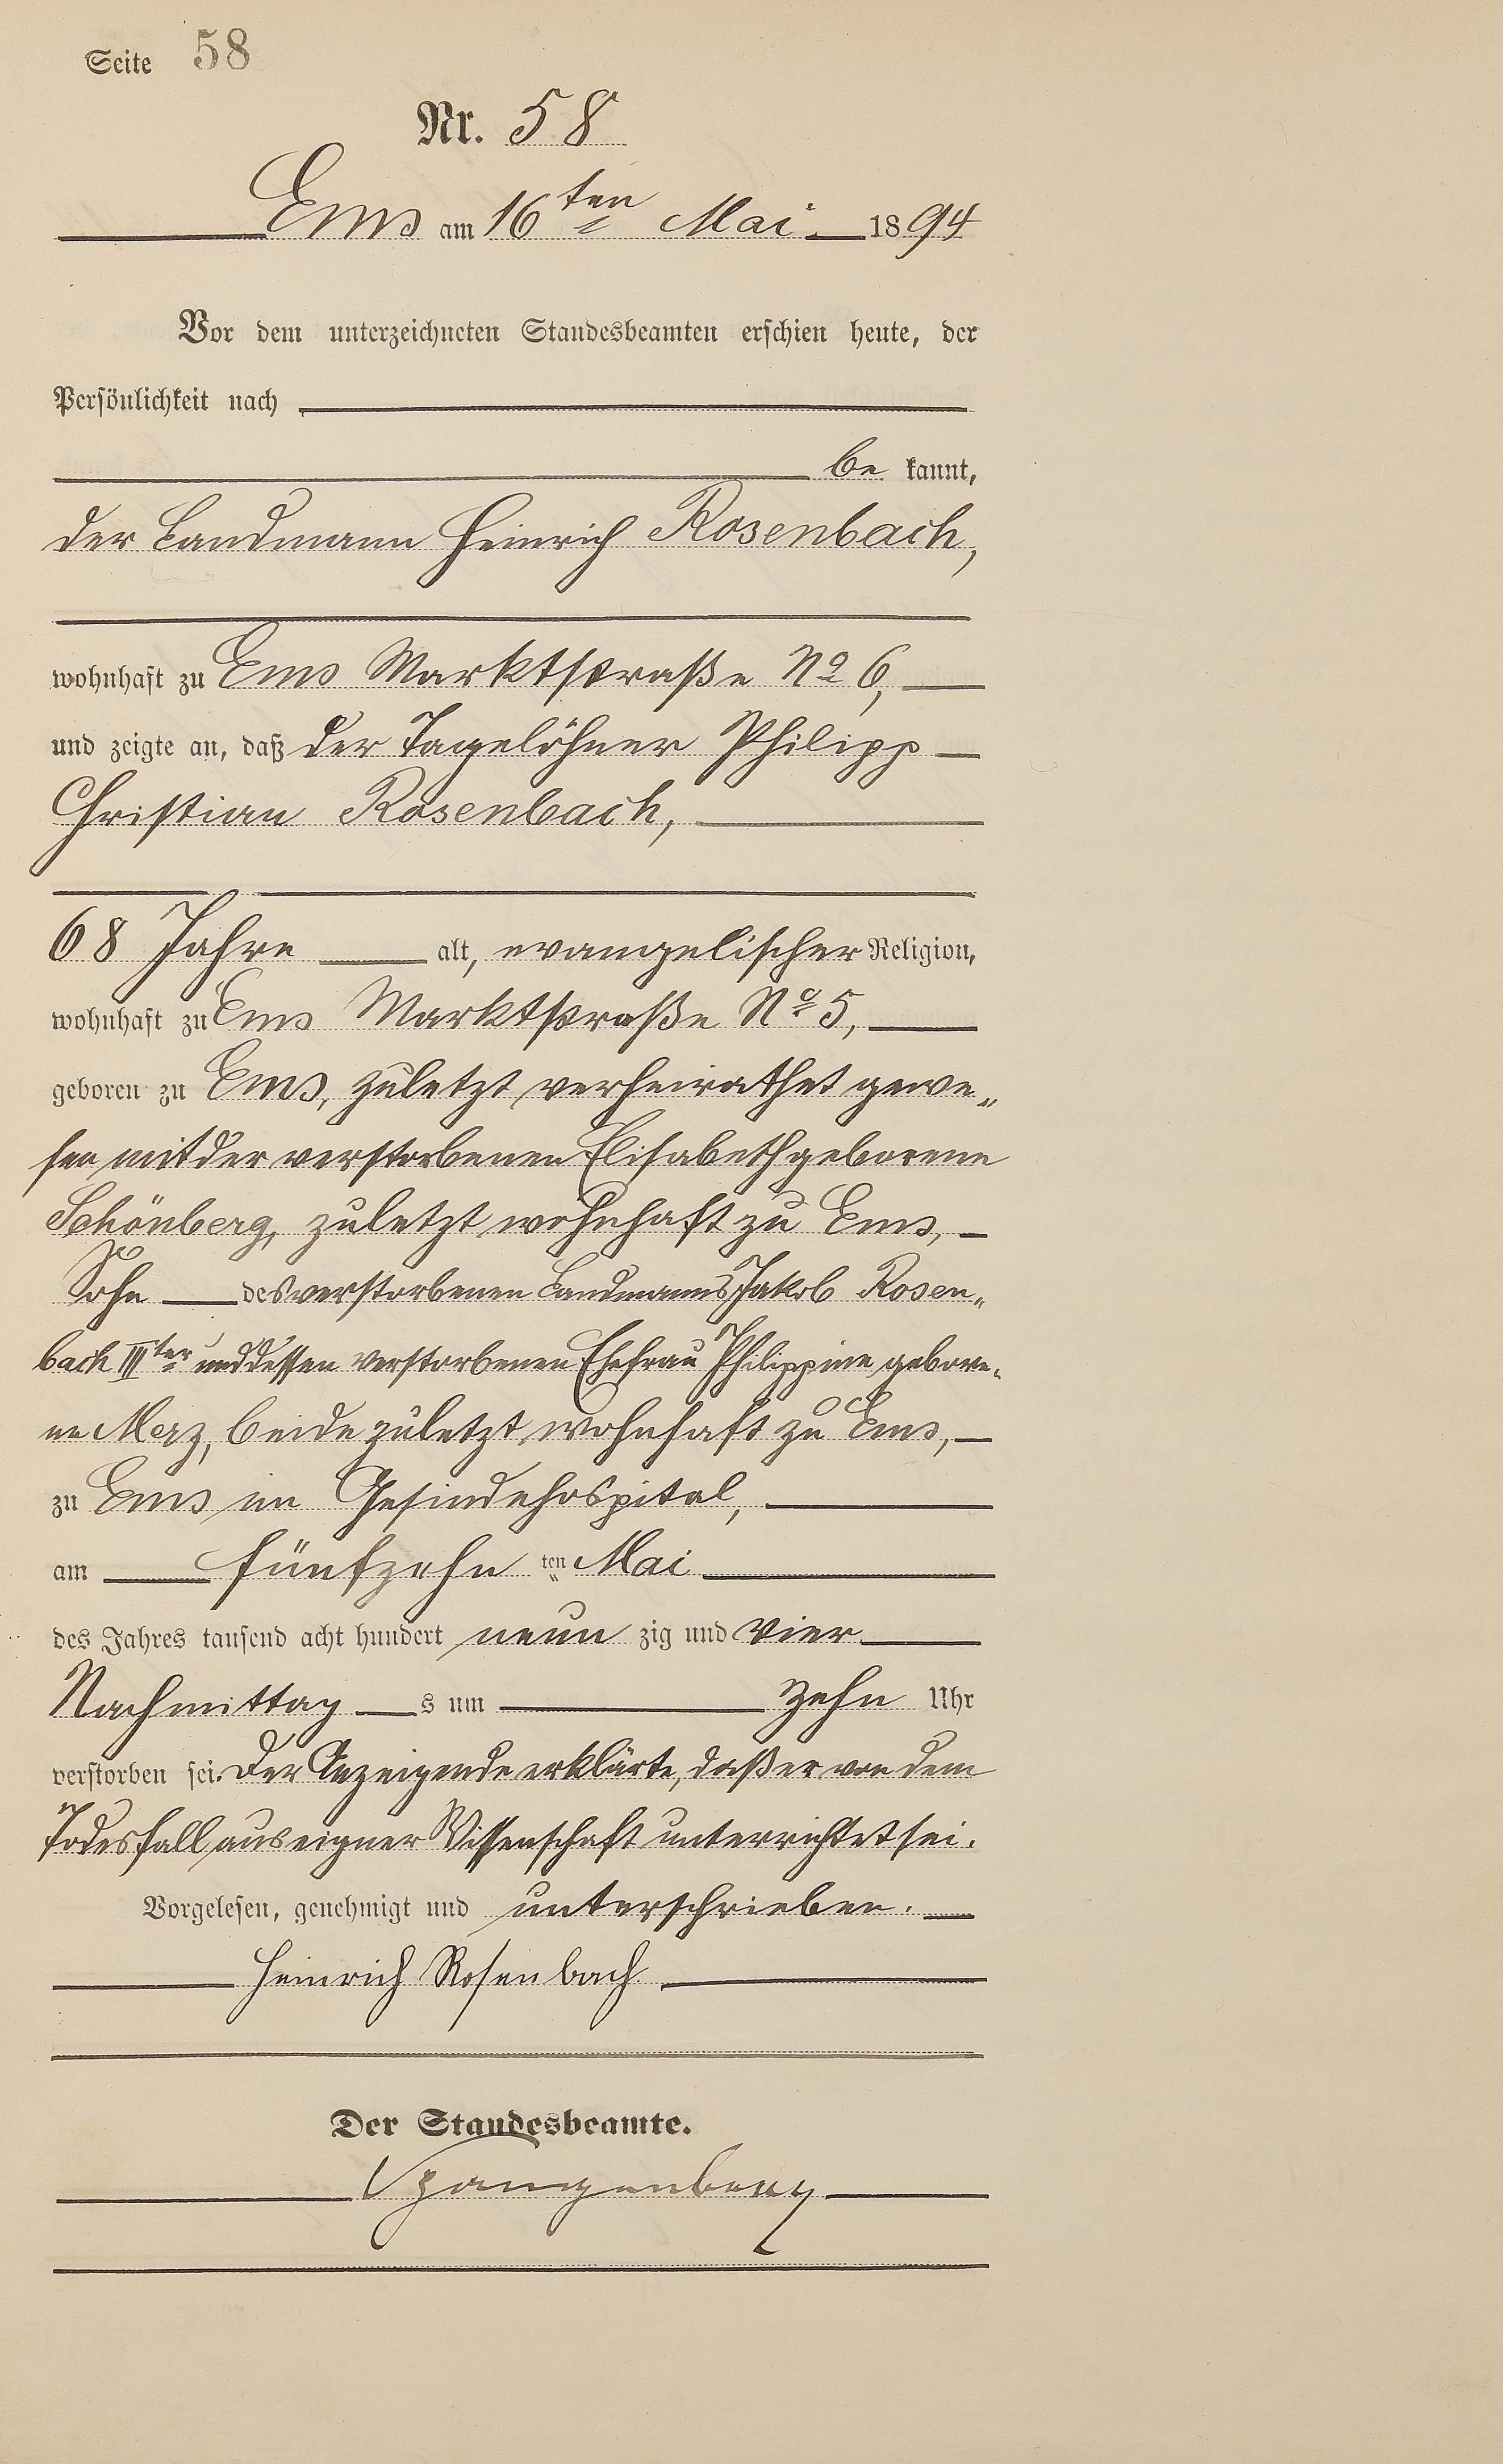 Seite 58
Nr. 58
Ems am 16ten Mai 1894
Vor dem unterzeichneten Standesbeamten erschien heute, der
Persönlichkeit nach
be kannt,
der Landmann Heinrich Rosenbach,
wohnhaft zu Ems Marktstraße No 6,
und zeigte an, daß der Tagelöhner Philipp
Christian Rosenbach,
68 Jahre alt, evangelischer Religion,
wohnhaft zu Ems Marktstraße No 5,
geboren zu Ems, zuletzt verheirathet gewe„
sen mit der verstorbenen Elisabeth geborene
Schönberg, zuletzt wohnhaft zu Ems,
Sohn des verstorbenen Landmanns Jakob Rosen„
bach IIIter und dessen verstorbenen Ehefrau Philippine gebore„
ne Merz, beide zuletzt wohnhaft zu Ems,
zu Ems im Gesindehospital,
am fünfzehn ten Mai
des Jahres tausend acht hundert neun zig und vier
Nachmittag s um zehn Uhr
verstorben sei. Der Anzeigende erklärte, daß er von dem
Todesfall aus eigner Wissenschaft unterrichtet sei.
Vorgelesen, genehmigt und unterschrieben.
Heinrich Rosenbach
Der Standesbeamte.
Spangenberg